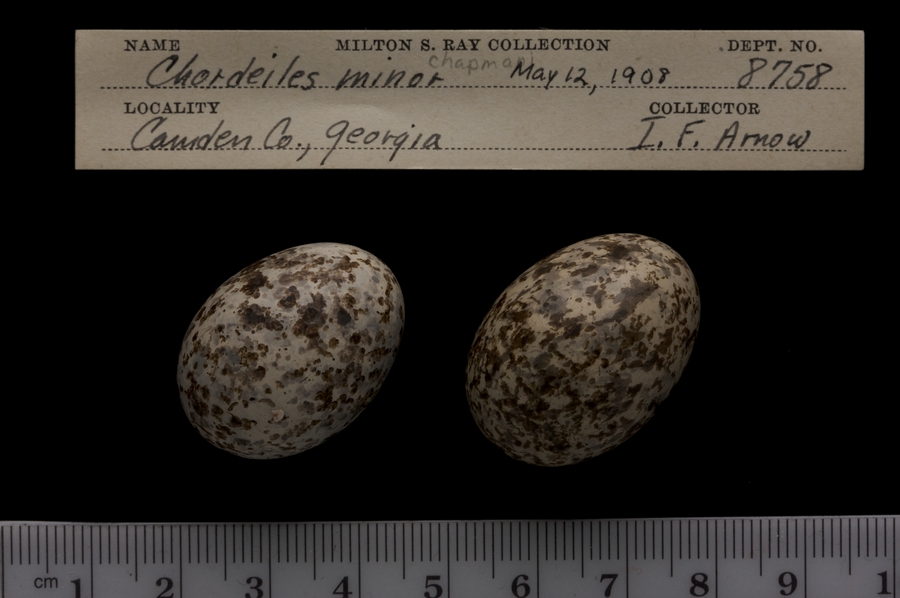 NAME MILTON S. RAY COLLECTION DEPT. NO.
Chordeiles minor chapmani May 12, 1908 8758
LOCALITY COLLECTOR
Camden Co., Georgia I. F. Arnow
cm 1 2 3 4 5 6 7 8 9 1